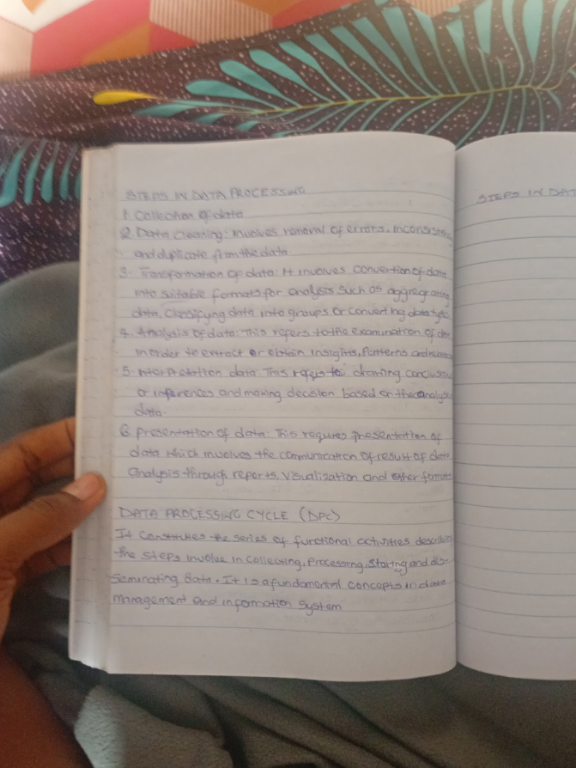 STEPS IN DATA PROCESSING
1. Collection of data
2. Data cleaning: Involves removal of errors, Inconsistency
and duplicate from the data
3. Transformation of data: It involves convertion of data
into suitable formats for analysis such as aggregrating
data, Classifying data into groups or converting data
4. Analysis of data: This refers to the examination of data
in order to extract or obtain insights, Patterns and
5. data: This refers to drawing conclusions
or inferences and making decision based on the analysis
data.
6. presentation of data: This requires presentation of
data which involves the communication of result of data
analysis through reports, visualization and other formats
DATA PROCESSING CYCLE (DPC)
It constitutes the series of functional activities describing
the steps involve in collecting, processing, storing and dis-
seminating data. It is a fundamental concepts in data
management and information system
STEPS IN DAT